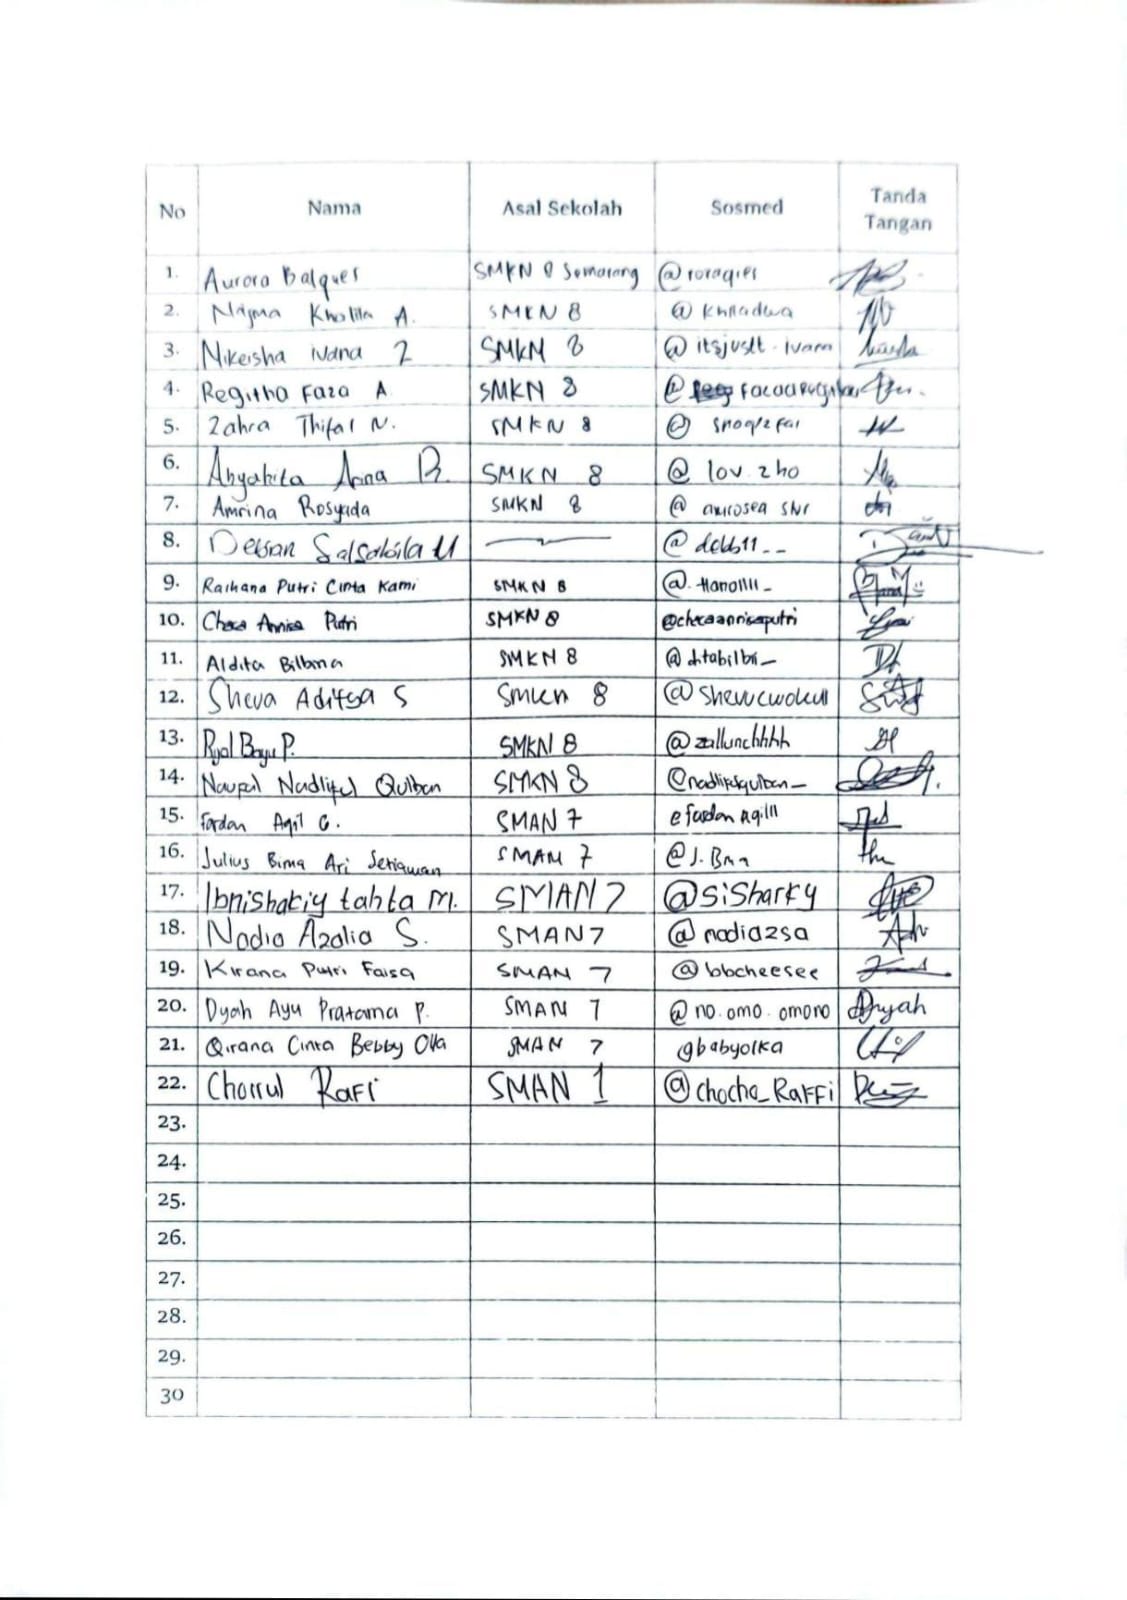 No Nama Asal Sekolah Sosmed Tanda Tangan
1. Aurora Balques SMKN 8 Semarang @roraqies
2. Najma Kholila A. SMKN 8 @khiladwa
3. Nikeisha ivana Z SMKN 8 @itsjuslt.ivana
4. Regitha Faza A SMKN 8 @
5. Zahra Thifal N. SMKN 8 @
6. Anna R. SMKN 8 @lov.zho
7. Amrina Rosyada SMKN 8 @
8. Salsabila U @debb11__
9. Raihana Putri Cinta Kami SMKN 8 @.Hano1111_
10. Checa Annisa Putri SMKN 8 @checaannisaputri
11. Aldita Bilbina SMKN 8 @ditabilbi_
12. Sheva Aditya S SMKN 8
13. Bayu P. SMKN 8 @zallunchhhh
14. Naufal Nadliful Qulban SMKN 8 @nadlifulqulban_
15. Fardan Aqil G. SMAN 7 @fardanaqilll
16. Julius Bima Ari Setiawan SMAN 7 @J.Bma
17. Ibnishakiy tahta M. SMAN 7 @SiSharky
18. Nadia Azalia S. SMAN 7 @nadiazsa
19. Kirana Putri Faisa SMAN 7 @bbcheesee
20. Dyah Ayu Pratama P. SMAN 7 @no.omo.omono Dyah
21. Qirana Cinta Bebby Olla SMAN 7 @babyolka
22. Choirul Rafi SMAN 1 @chocho_Raffi
23.
24.
25.
26.
27.
28.
29.
30